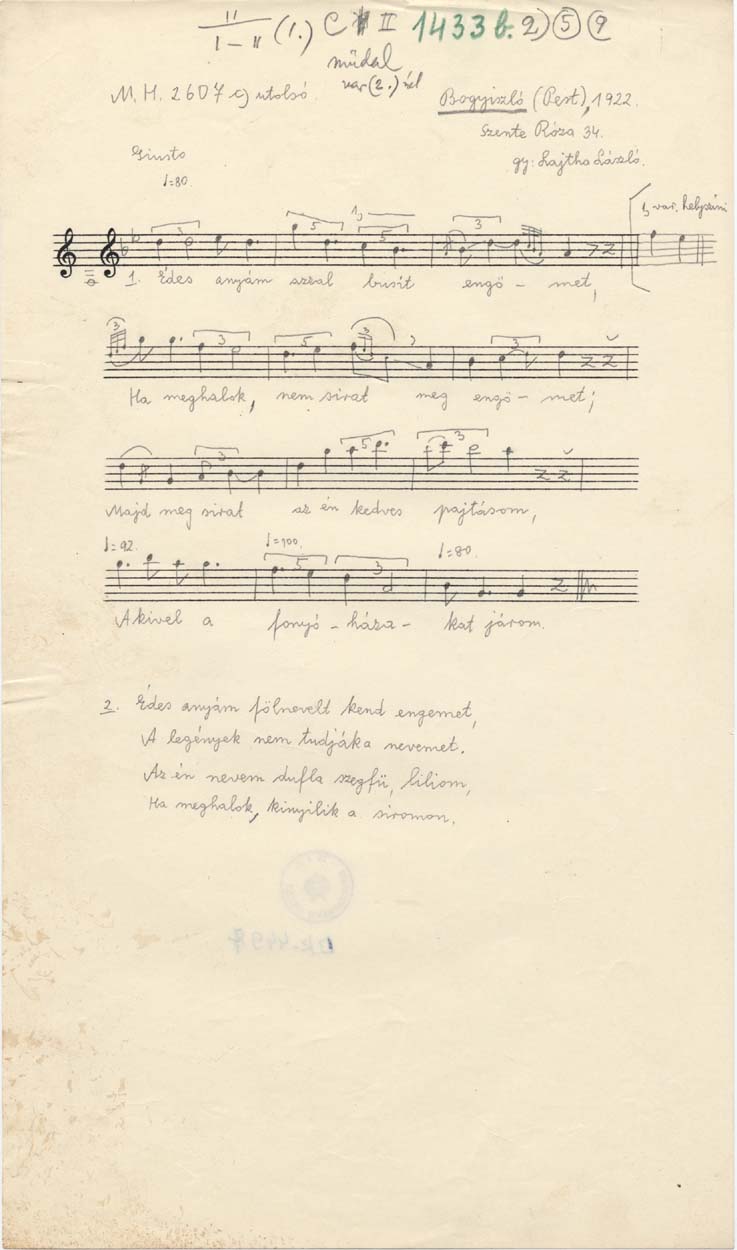 II
I – II (1.) C II 1433 b. 2) 5 9
műdal
var (2.) nél
M. H. 2607 c) utolsó
Bogyiszló (Pest), 1922.
Szente Róza 34.
gy: Lajtha László.
Giusto
♩=80.
1, var. helyszíni
1. Édes anyám azzal busít engö – met,
Ha meghalok, nem sirat meg engö – met;
Majd meg sirat az én kedves pajtásom,
♩=92. ♩=100. ♩=80.
Akivel a fonyó – háza – kat járom.
2. Édes anyám fölnevelt kend engemet,
A legények nem tudjáka nevemet.
Az én nevem dufla szegfü, liliom,
Ha meghalok, kinyilik a siromon.